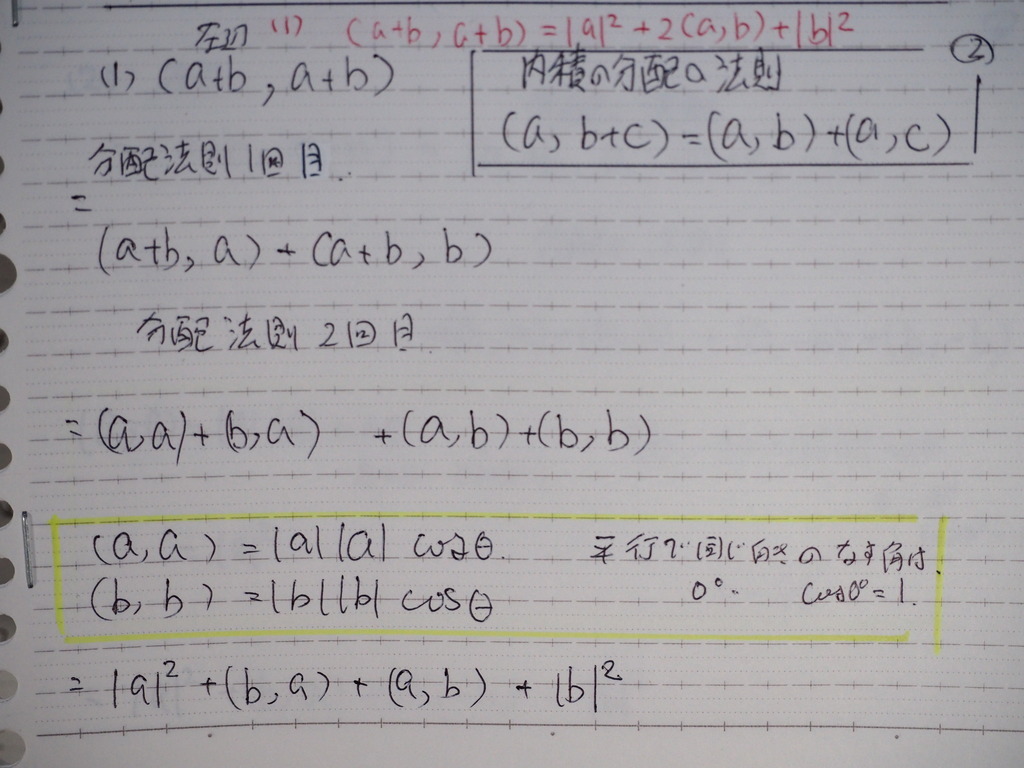 左辺 (1) (a+b, a+b) = |a|² + 2(a,b) + |b|²
②
(1) (a+b, a+b)
内積の分配の法則
(a, b+c) = (a, b) + (a, c)
分配法則1回目
=
(a+b, a) + (a+b, b)
分配法則 2回目
= (a,a) + (b,a) + (a,b) + (b,b)
(a,a) = |a||a| cosθ. 平行で同じ向きのなす角は、
(b,b) = |b||b| cosθ 0°. cos0°=1.
= |a|² + (b,a) + (a,b) + |b|²